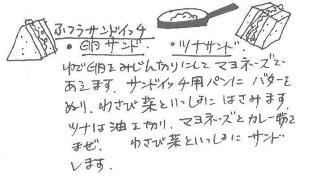 ふつうサンドイッチ
・卵サンド ・ツナサンド
ゆで卵をみじん切りにしてマヨネーズで
あえます。サンドイッチ用パンにバターを
ぬり、わさび菜といっしょにはさみます。
ツナは油を切り、マヨネーズとカレー粉を
まぜ、わさび菜といっしょにサンド
します。